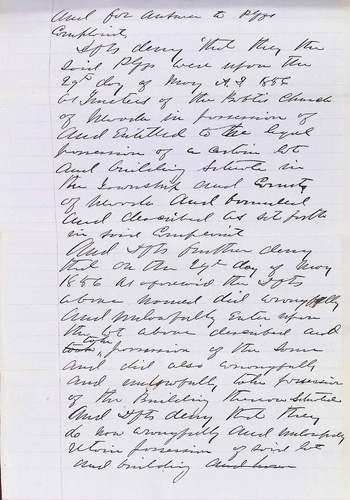 And for answer to Plffs
Complaint
Dfts deny that they the
said Plffs were upon the
29th day of May A.D. 1856
as Trustees of the Baptist Church
of Nevada in possession of
And Entitled to the legal
possession of a certain lot
And building Situate in
the Township and County
of Nevada And bounded
And described as set forth
in said Complaint
And Dfts further deny
that on the 29th day of May
1856 as aforesaid the Dfts
above named did wrongfully
And unlawfully Enter upon
the lot above described and
took take possession of the same
And did also wrongfully
and unlawfully take possession
of the Building thereon Situated
And Dfts deny that they
do now wrongfully And unlawfully
retain possession of said lot
and building